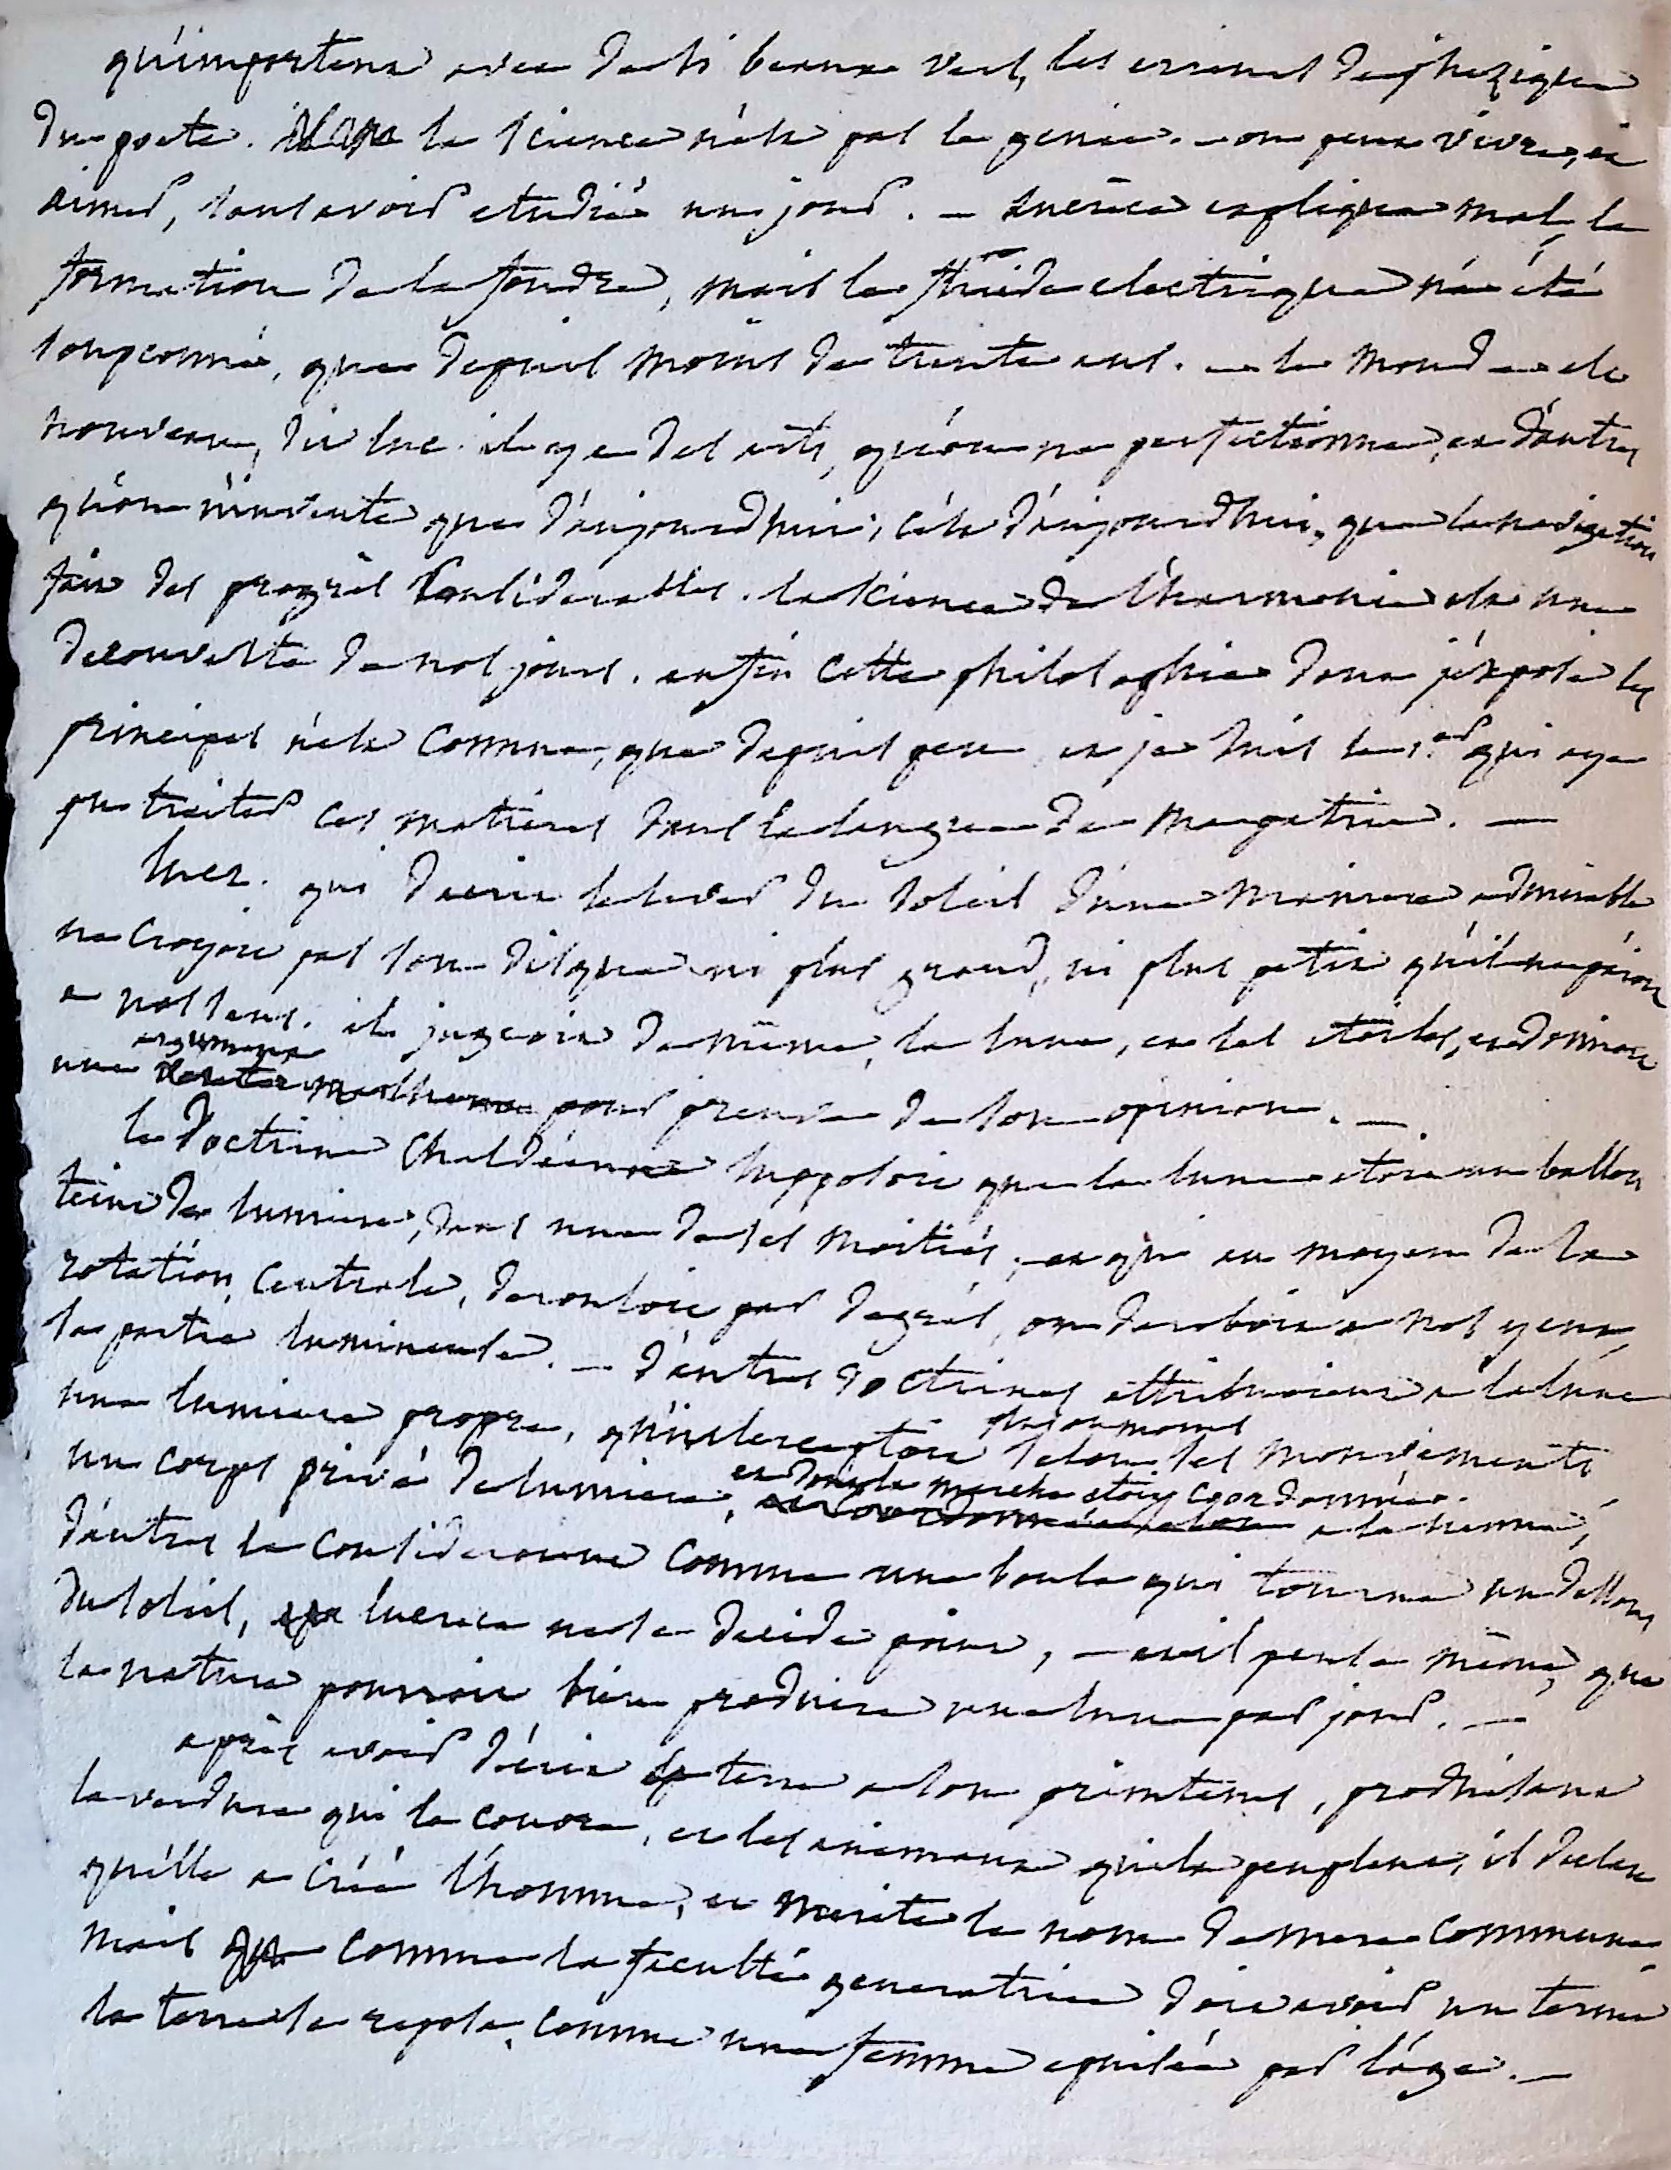 qu'importent avec de si beaux vers, les erreurs de phizique
du poete. la science n'est pas le genie. – on peut vivre, et
aimer, sans avoir etudié un jour. – Lucrèce explique mal, la
formation de la foudre, mais le fluide electrique n'a été
soupconné, que depuis moins de trente ans. – le monde est
nouveau, dit luc. il y a des arts, qu'on ne perfectionne, et d'autres
qu'on n'invente que d'aujourdhui, c'est d'aujourdhui, que la navigation
fait des progrès considerables. la science de l'harmonie est une
decouverte de nos jours. enfin cette philosophie dont j'expose les
principes n'est connue, que depuis peu et je suis le 1.er qui aye
pu traiter ces matieres dans la langue de ma patrie. –
lucr. qui decrit le lever du soleil d'une maniere admirable
ne croyoit pas son disque ni plus grand, ni plus petit qu'il ne paroit
a nos sens. il jugeoit de même, la lune, et les etoiles, et donnoit
argument
une pour preuve de son opinion. –
la doctrine Chaldéenne supposoit que la lune etoit un ballon
teint de lumiere, dans une de ses moitiés, et qui au moyen de sa
rotation, centrale, decouvroit par degrés, ou deroboit a nos yeux,
sa partie lumineuse. – d'autres doctrines attribuoient a la lune
une lumiere propre, qu'interceptoit selon ses mouvements
un corps privé de lumiere, et dont la marche etoit coordonnée
a la sienne,
d'autres la consideroient comme une boule qui tourne au dessous
du soleil, lucrece ne se decide point, – et il pense même, que
la nature pourroit bien produire une lune par jour. –
après avoir décrit la terre a son printems, produisant
la verdure qui la couvre, et les animaux qui la peuplent, il declare
qu'elle a créé l'homme, et merite le nom de mere commune
mais comme la faculté generatrice doit avoir un terme
la terre se repose, comme une femme epuisée par l'age. –